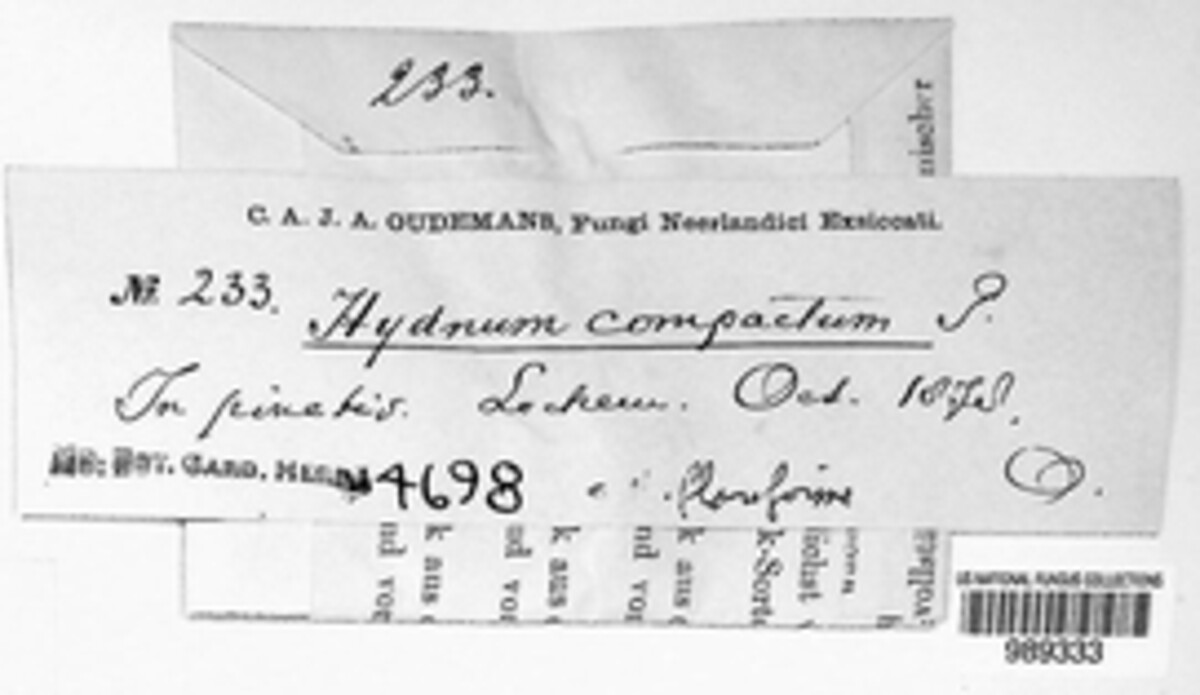 233.
nischer
C. A. J. A. OUDEMANS, Fungi Neerlandici Exsiccati.
№ 233. Hydnum compactum P.
In pinetis. Lochem. Oct. 1878.
Mo. Bot. Gard. Herb. 4698 floriforme O.
nd vor
k aus
nd vor
k aus
nd vor
k aus
k-Sorte
h
US NATIONAL FUNGUS COLLECTIONS
989333